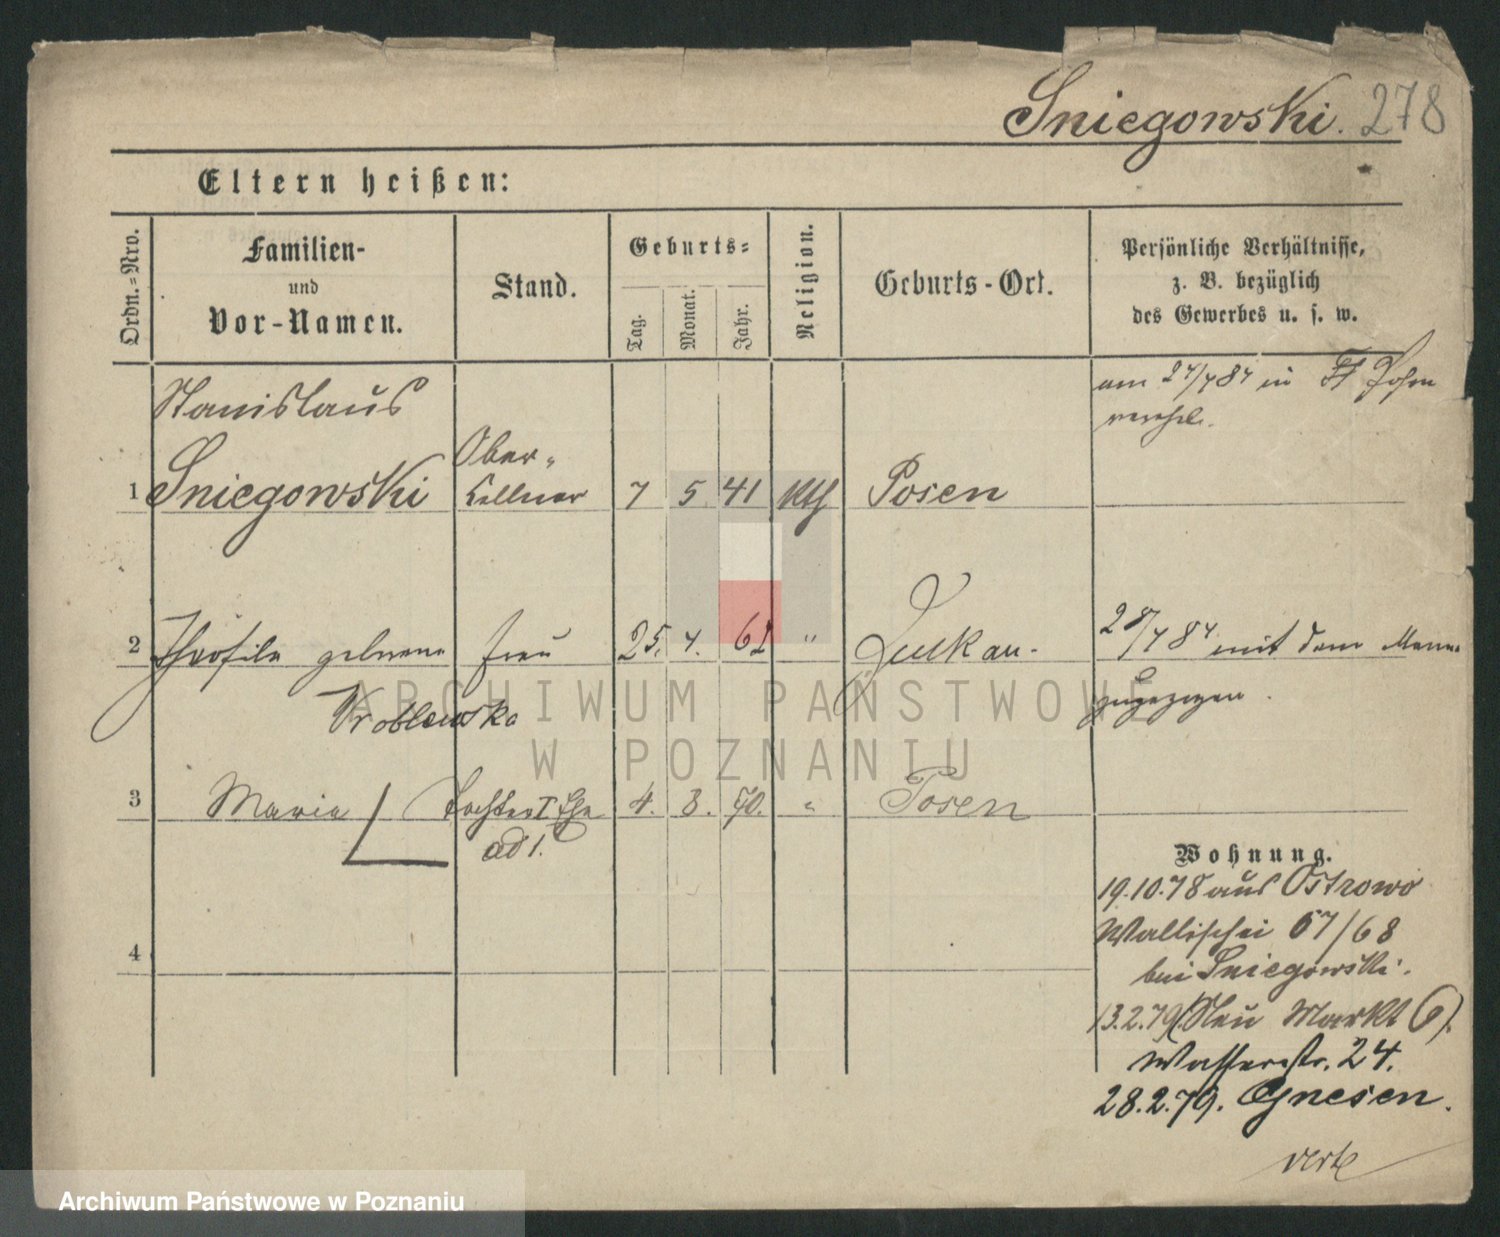 Sniegowski. 278
Eltern heißen:
Ordn.=Nro.
Familien-
und
Vor-Namen.
Stand.
Geburts=
Tag.
Monat.
Jahr.
Religion.
Geburts-Ort.
Persönliche Verhältnisse,
z. B. bezüglich
des Gewerbes u. s. w.
am 27/4 84 in Posen
verehel.
Stanislaus
1 Sniegowski Ober-
kellner 7 5 41 kth Posen
2 geborene Frau 25. 4. 61 " 28/4 84 mit dem Manne
Wroblewska zugezogen.
3 Maria Tochter I Ehe 4. 3. 70. " Posen
ad 1.
4
Wohnung.
19.10.78 aus Ostrowo
Wallischei 67/68
bei Sniegowski.
13.2.79 (Neu Markt 6).
Wasserstr. 24.
28.2.79. Gnesen.
verte
ARCHIWUM PAŃSTWOWE
W POZNANIU
Archiwum Państwowe w Poznaniu